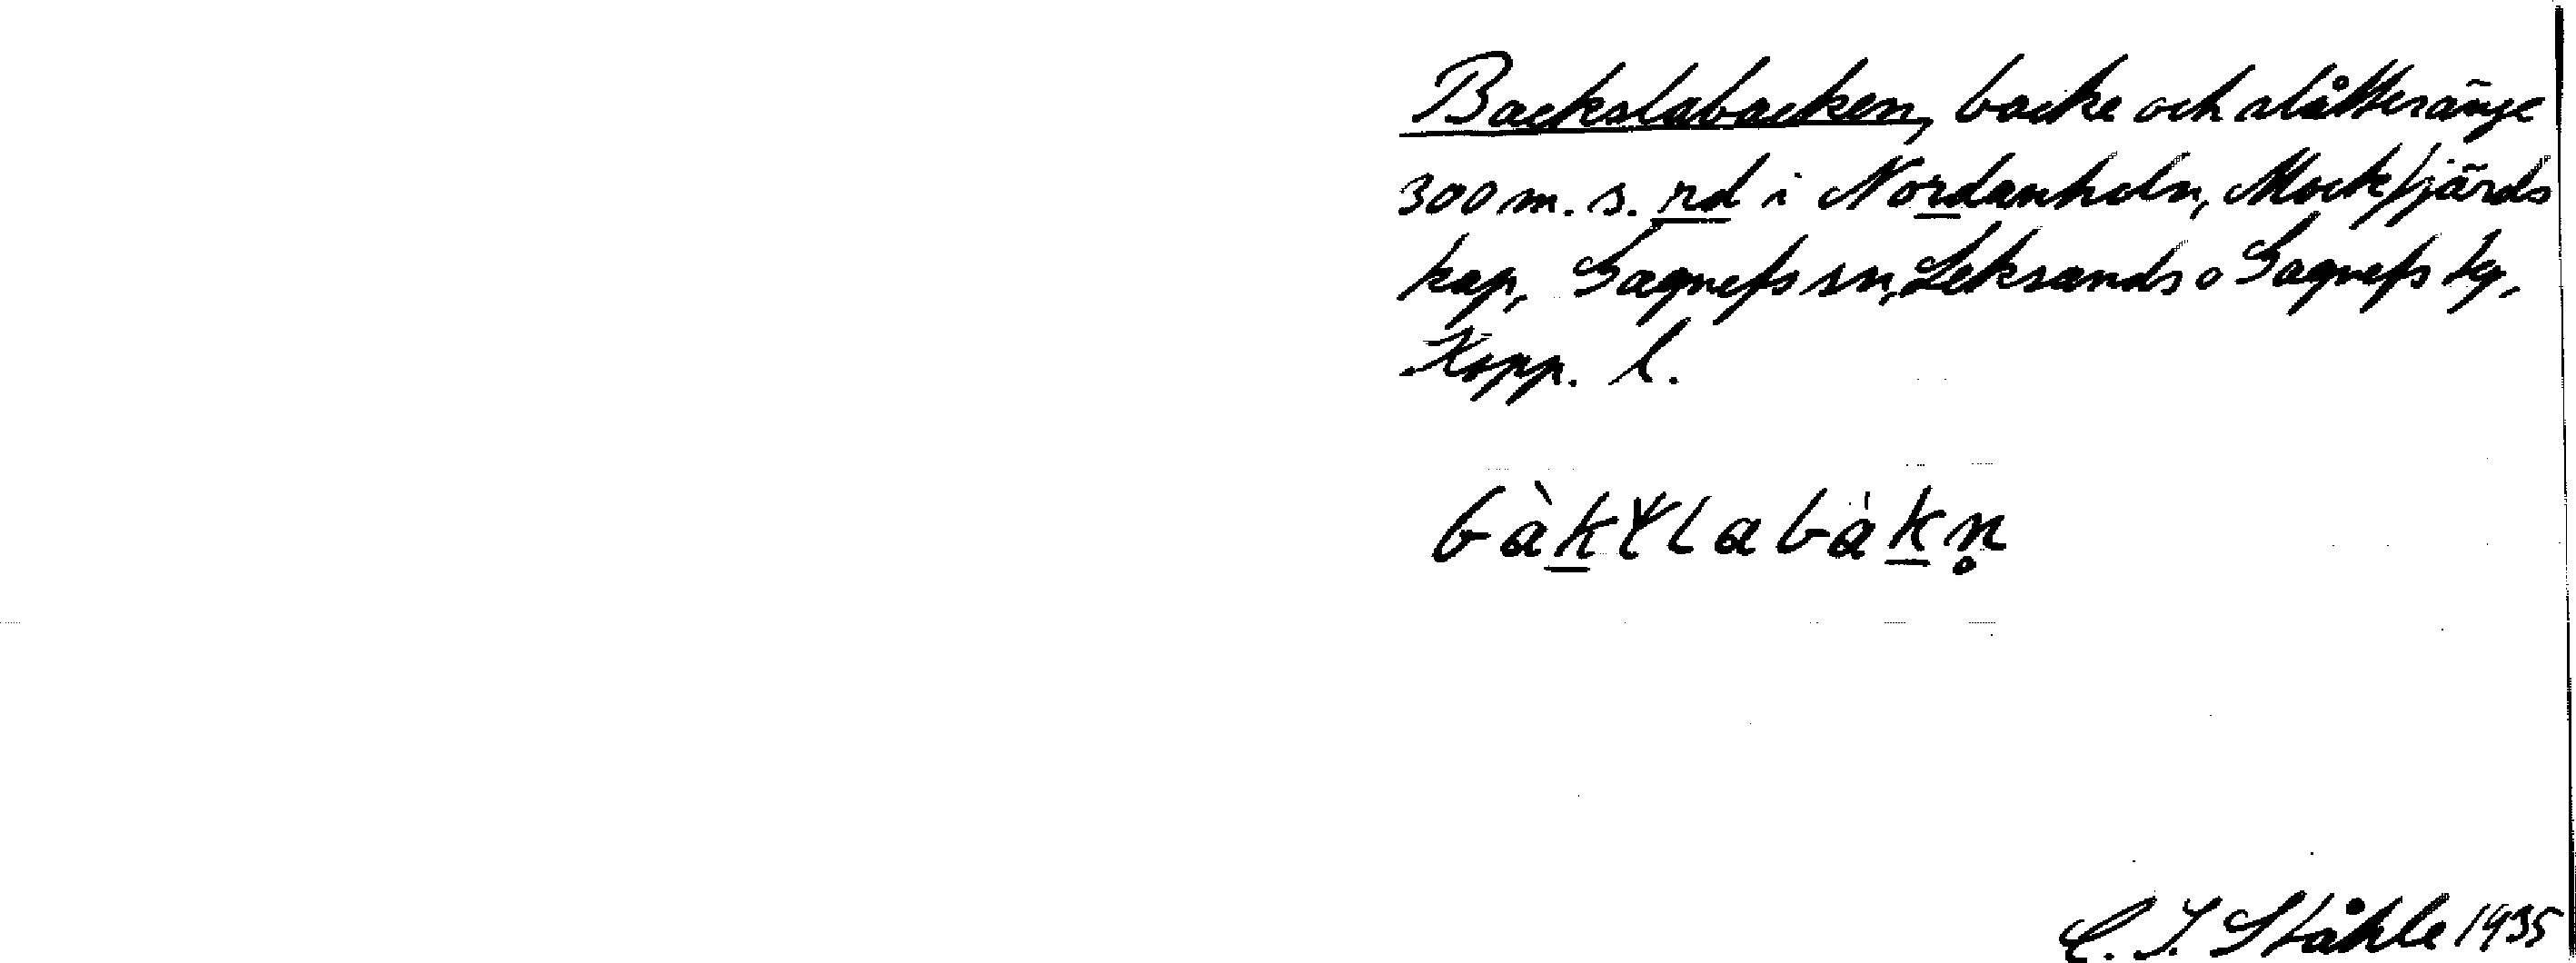 Backslabacken, backe och slåtteränge
300 m. s. rd i Nordanholn, Mockfjärds
kap, Gagnefs sn, Leksands o Gagnefs tg,
Kopp. l.
C. I. Ståhle 1935